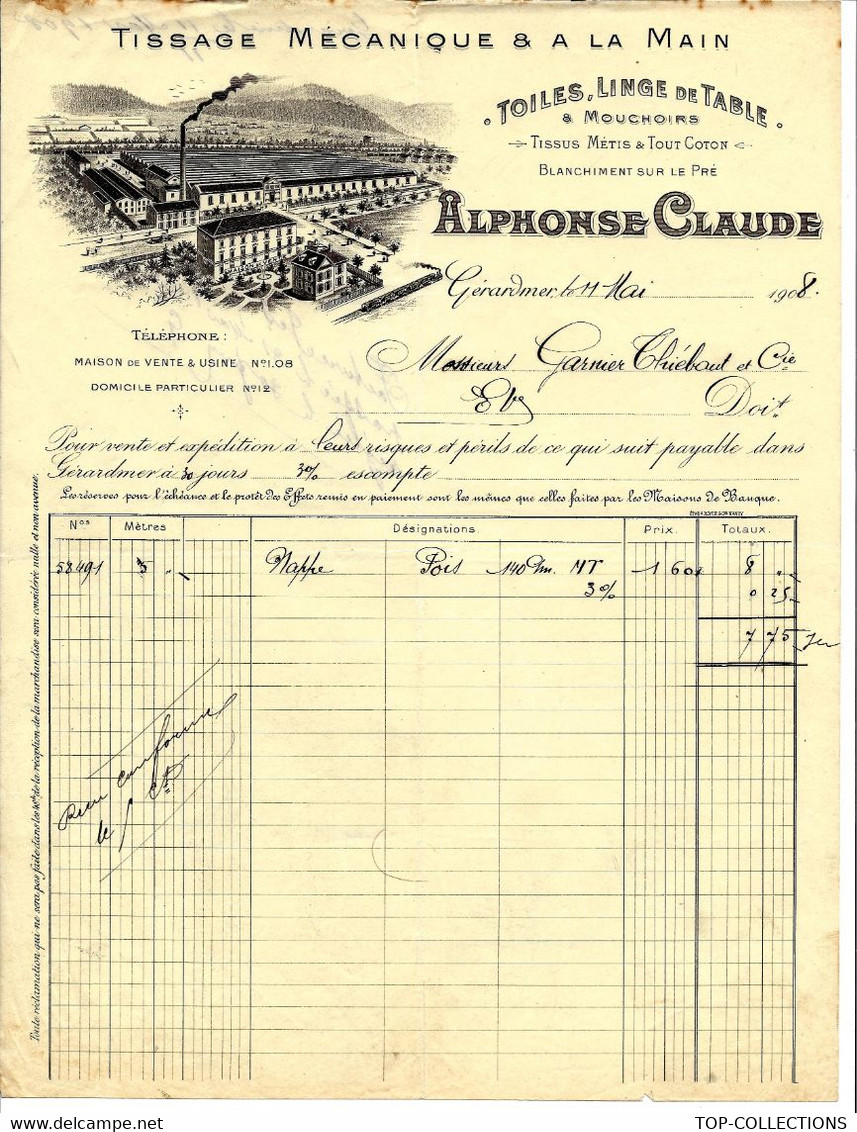 TISSAGE MÉCANIQUE & A LA MAIN
TOILES, LINGE DE TABLE
& MOUCHOIRS
TISSUS MÉTIS & TOUT COTON
BLANCHIMENT SUR LE PRÉ
ALPHONSE CLAUDE
Gérardmer, le 11 Mai 1908.
TÉLÉPHONE :
MAISON DE VENTE & USINE No 1.08
DOMICILE PARTICULIER No 12
Messieurs Garnier Thiébaut et Cie
Doit
Pour vente et expédition à leurs risques et périls de ce qui suit payable dans
Gérardmer à 30 jours 3% escompte
Les réserves pour l'échéance et le protêt des Effets remis en paiement sont les mêmes que celles faites par les Maisons de Banque.
Nos Mètres Désignations. Prix. Totaux.
58491 5 " Nappe Pois 140 c/m. MT 1 60 8 "
3% 0 25
7 75
Reçu conforme
le
Toute réclamation qui ne sera pas faite dans les de la réception de la marchandise sera considérée nulle et non avenue.
TOP-COLLECTIONS